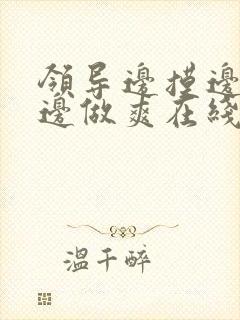 領导邊摸邊
邊做爽在綫
溫千醉